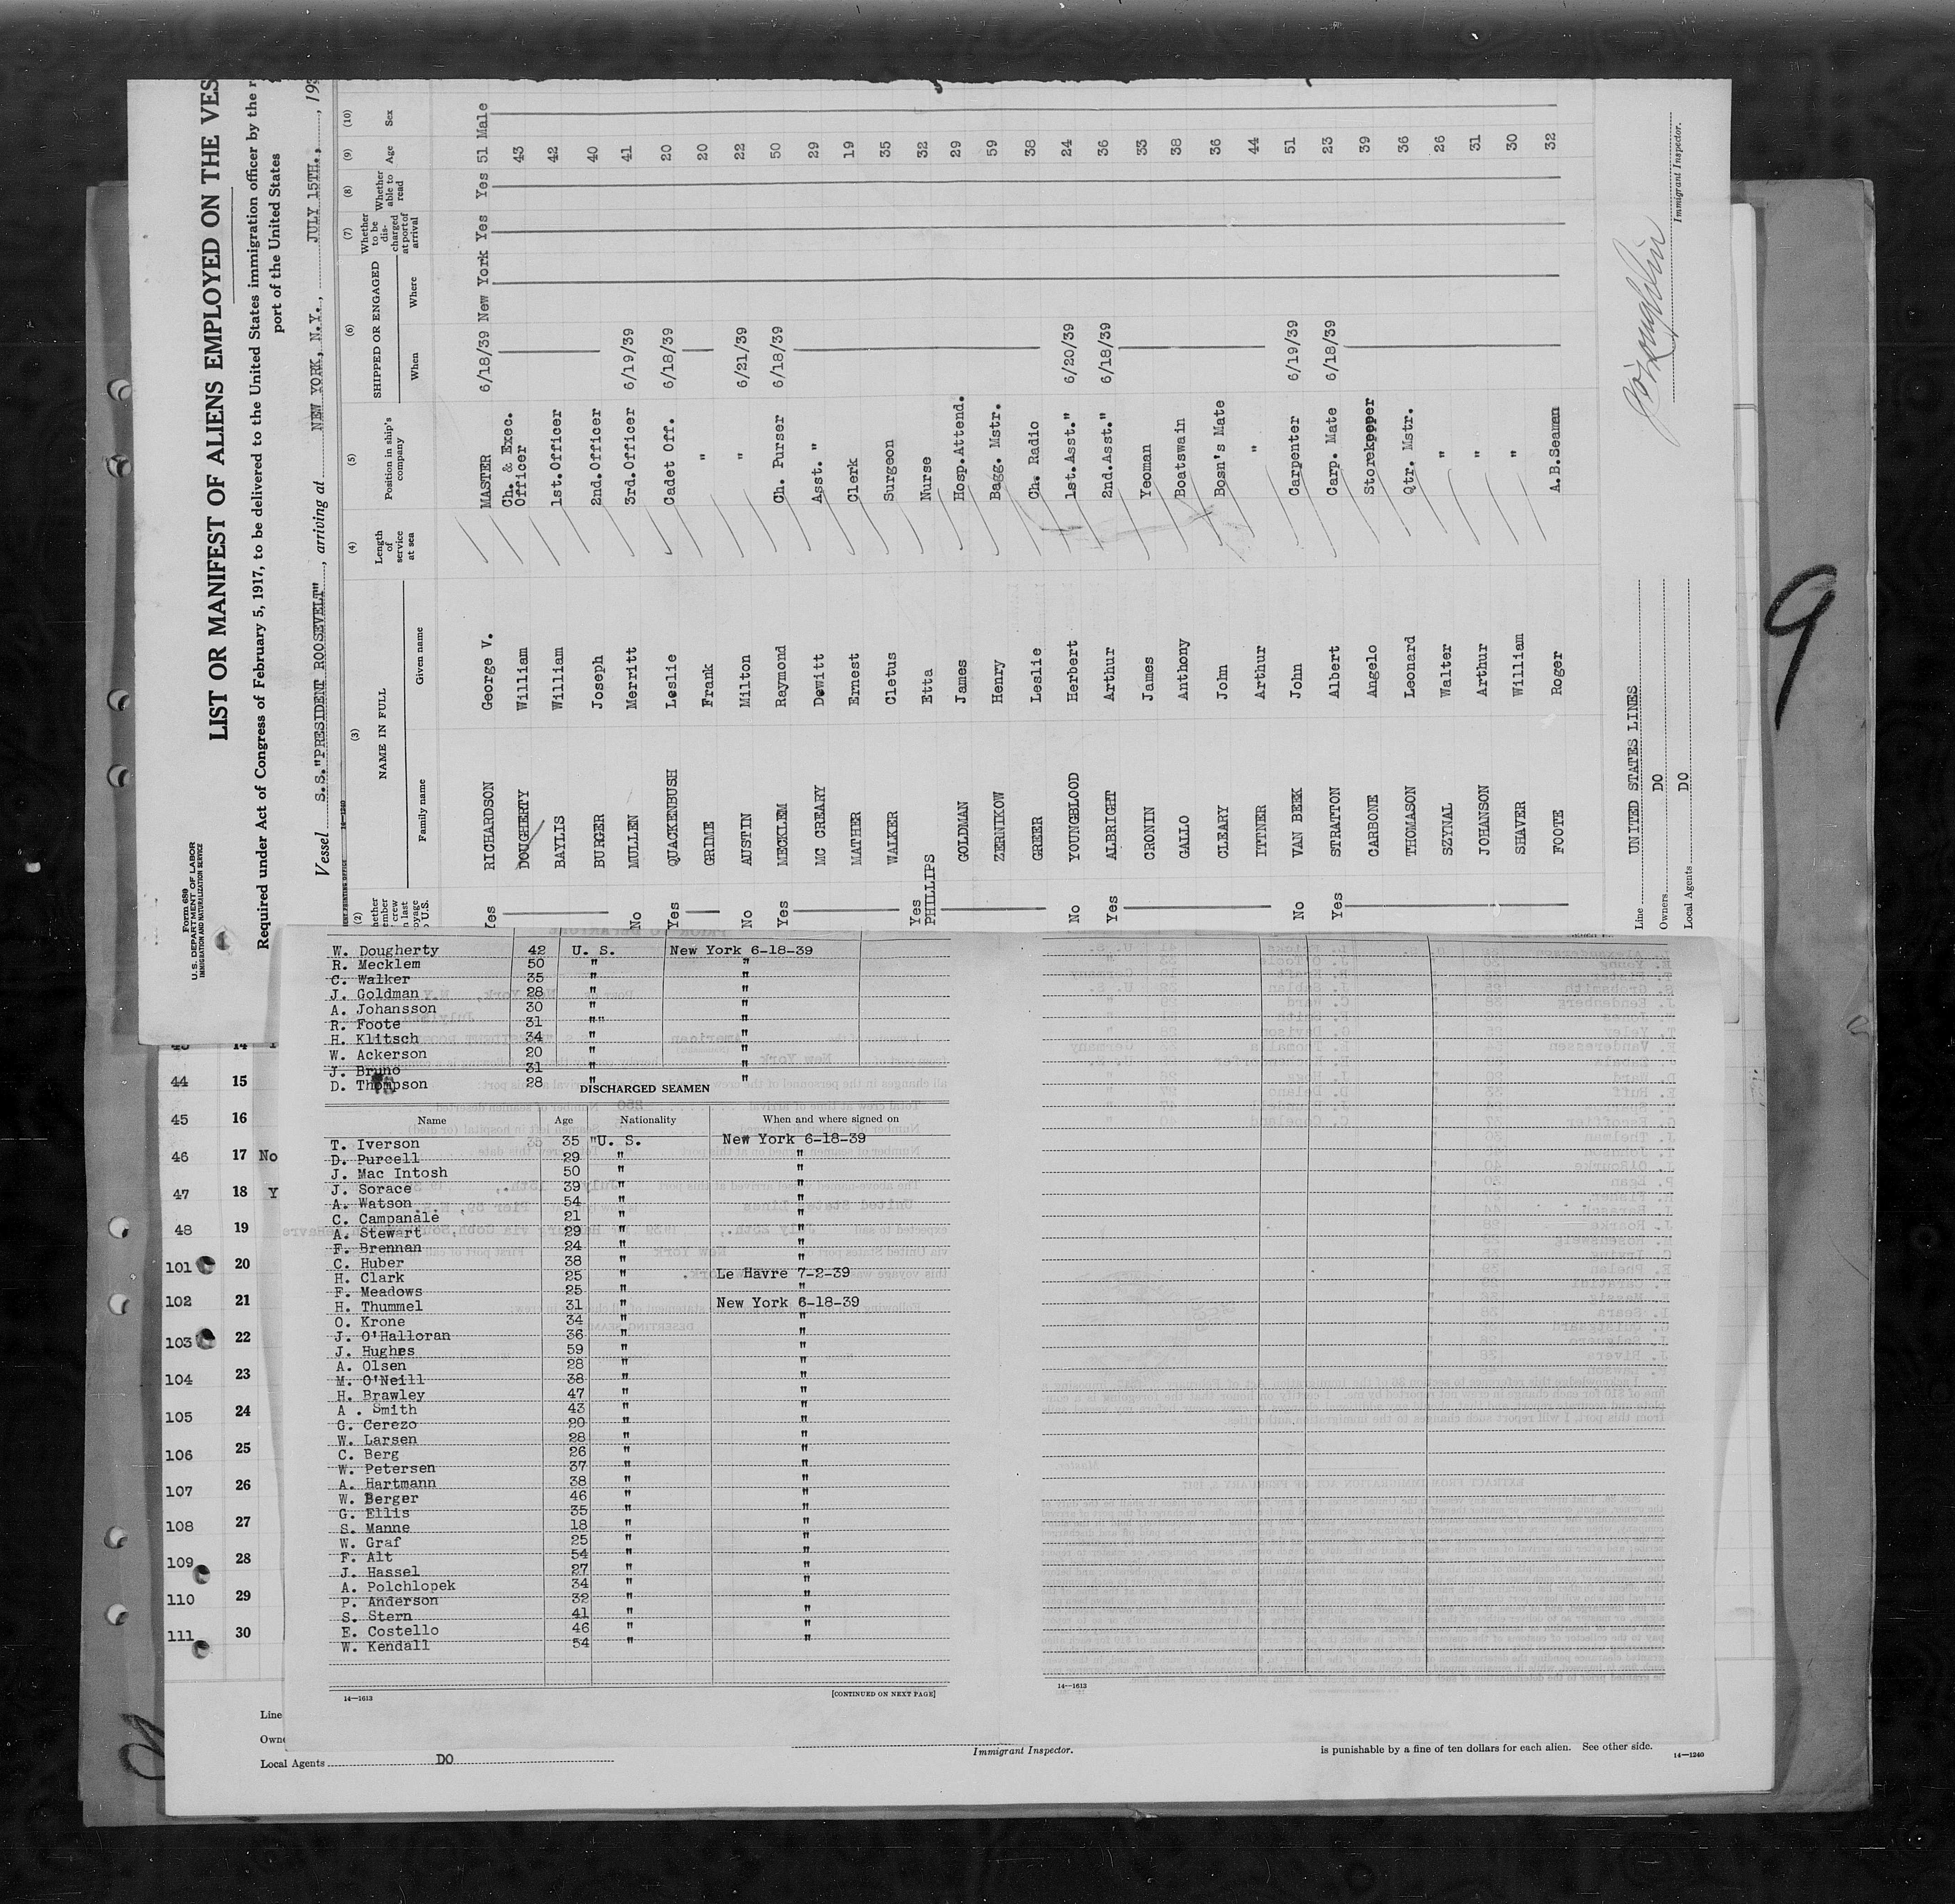 Form 689
U.S. DEPARTMENT OF LABOR
IMMIGRATION AND NATURALIZATION SERVICE
LIST OR MANIFEST OF ALIENS EMPLOYED ON THE VES
Required under Act of Congress of February 5, 1917, to be delivered to the United States immigration officer by the r
port of the United States
Vessel S.S."PRESIDENT ROOSEVELT", arriving at NEW YORK, N.Y., JULY 15TH., 193
14—1240
(2) (3) (4) (5) (6) (7) (8) (9) (10)
NAME IN FULL
Family name Given name
Length of service at sea
Position in ship's company
SHIPPED OR ENGAGED
When Where
Whether to be discharged at port of arrival
Whether able to read
Age
Sex
Yes RICHARDSON George V. MASTER 6/18/39 New York Yes Yes 51 Male
DOUGHERTY William Ch. & Exec. Officer 43
BAYLIS William 1st.Officer 42
BURGER Joseph 2nd.Officer 40
No MULLEN Merritt 3rd.Officer 6/19/39 41
Yes QUACKENBUSH Leslie Cadet Off. 6/18/39 20
GRIME Frank " 20
No AUSTIN Milton " 6/21/39 22
Yes MECKLEM Raymond Ch. Purser 6/18/39 50
MC CREARY Dewitt Asst. " 29
MATHER Ernest Clerk 19
WALKER Cletus Surgeon 35
Yes PHILLIPS Etta Nurse 32
GOLDMAN James Hosp.Attend. 29
ZERNIKOW Henry Bagg. Mstr. 59
GREER Leslie Ch. Radio 38
No YOUNGBLOOD Herbert 1st.Asst." 6/20/39 24
Yes ALBRIGHT Arthur 2nd.Asst." 6/18/39 36
CRONIN James Yeoman 33
GALLO Anthony Boatswain 38
CLEARY John Bosn's Mate 36
ITTNER Arthur " 44
No VAN BEEK John Carpenter 6/19/39 51
Yes STRATTON Albert Carp. Mate 6/18/39 23
CARBONE Angelo Storekeeper 39
THOMASON Leonard Qtr. Mstr. 36
SZYNAL Walter " 26
JOHANSON Arthur " 31
SHAVER William " 30
FOOTE Roger A.B.Seaman 32
Line UNITED STATES LINES
Owners DO
Local Agents DO
Immigrant Inspector.
9
W. Dougherty 42 U. S. New York 6-18-39
R. Mecklem 50 " "
C. Walker 35 " "
J. Goldman 28 " "
A. Johansson 30 " "
R. Foote 31 "" "
H. Klitsch 34 " "
W. Ackerson 20 " "
J. Bruno 31 " "
D. Thompson 28 " "
DISCHARGED SEAMEN
Name Age Nationality When and where signed on
T. Iverson 35 "U. S. New York 6-18-39
D. Purcell 29 " "
J. Mac Intosh 50 " "
J. Sorace 39 " "
A. Watson 54 " "
C. Campanale 21 " "
A. Stewart 29 " "
F. Brennan 24 " "
C. Huber 38 " "
H. Clark 25 " Le Havre 7-2-39
F. Meadows 25 " "
H. Thummel 31 " New York 6-18-39
O. Krone 34 " "
J. O'Halloran 36 " "
J. Hughes 59 " "
A. Olsen 28 " "
M. O'Neill 38 " "
H. Brawley 47 " "
A . Smith 43 " "
G. Cerezo 20 " "
W. Larsen 28 " "
C. Berg 26 " "
W. Petersen 37 " "
A. Hartmann 38 " "
W. Berger 46 " "
G. Ellis 35 " "
S. Manne 18 " "
W. Graf 25 " "
F. Alt 54 " "
J. Hassel 27 " "
A. Polchlopek 34 " "
P. Anderson 32 " "
S. Stern 41 " "
E. Costello 46 " "
W. Kendall 54 " "
14—1613
[CONTINUED ON NEXT PAGE]
14—1613
44 15
45 16
46 17 No
47 18 Y
48 19
101 20
102 21
103 22
104 23
105 24
106 25
107 26
108 27
109 28
110 29
111 30
Line
Owne
Local Agents DO
Immigrant Inspector.
is punishable by a fine of ten dollars for each alien. See other side.
14—1240